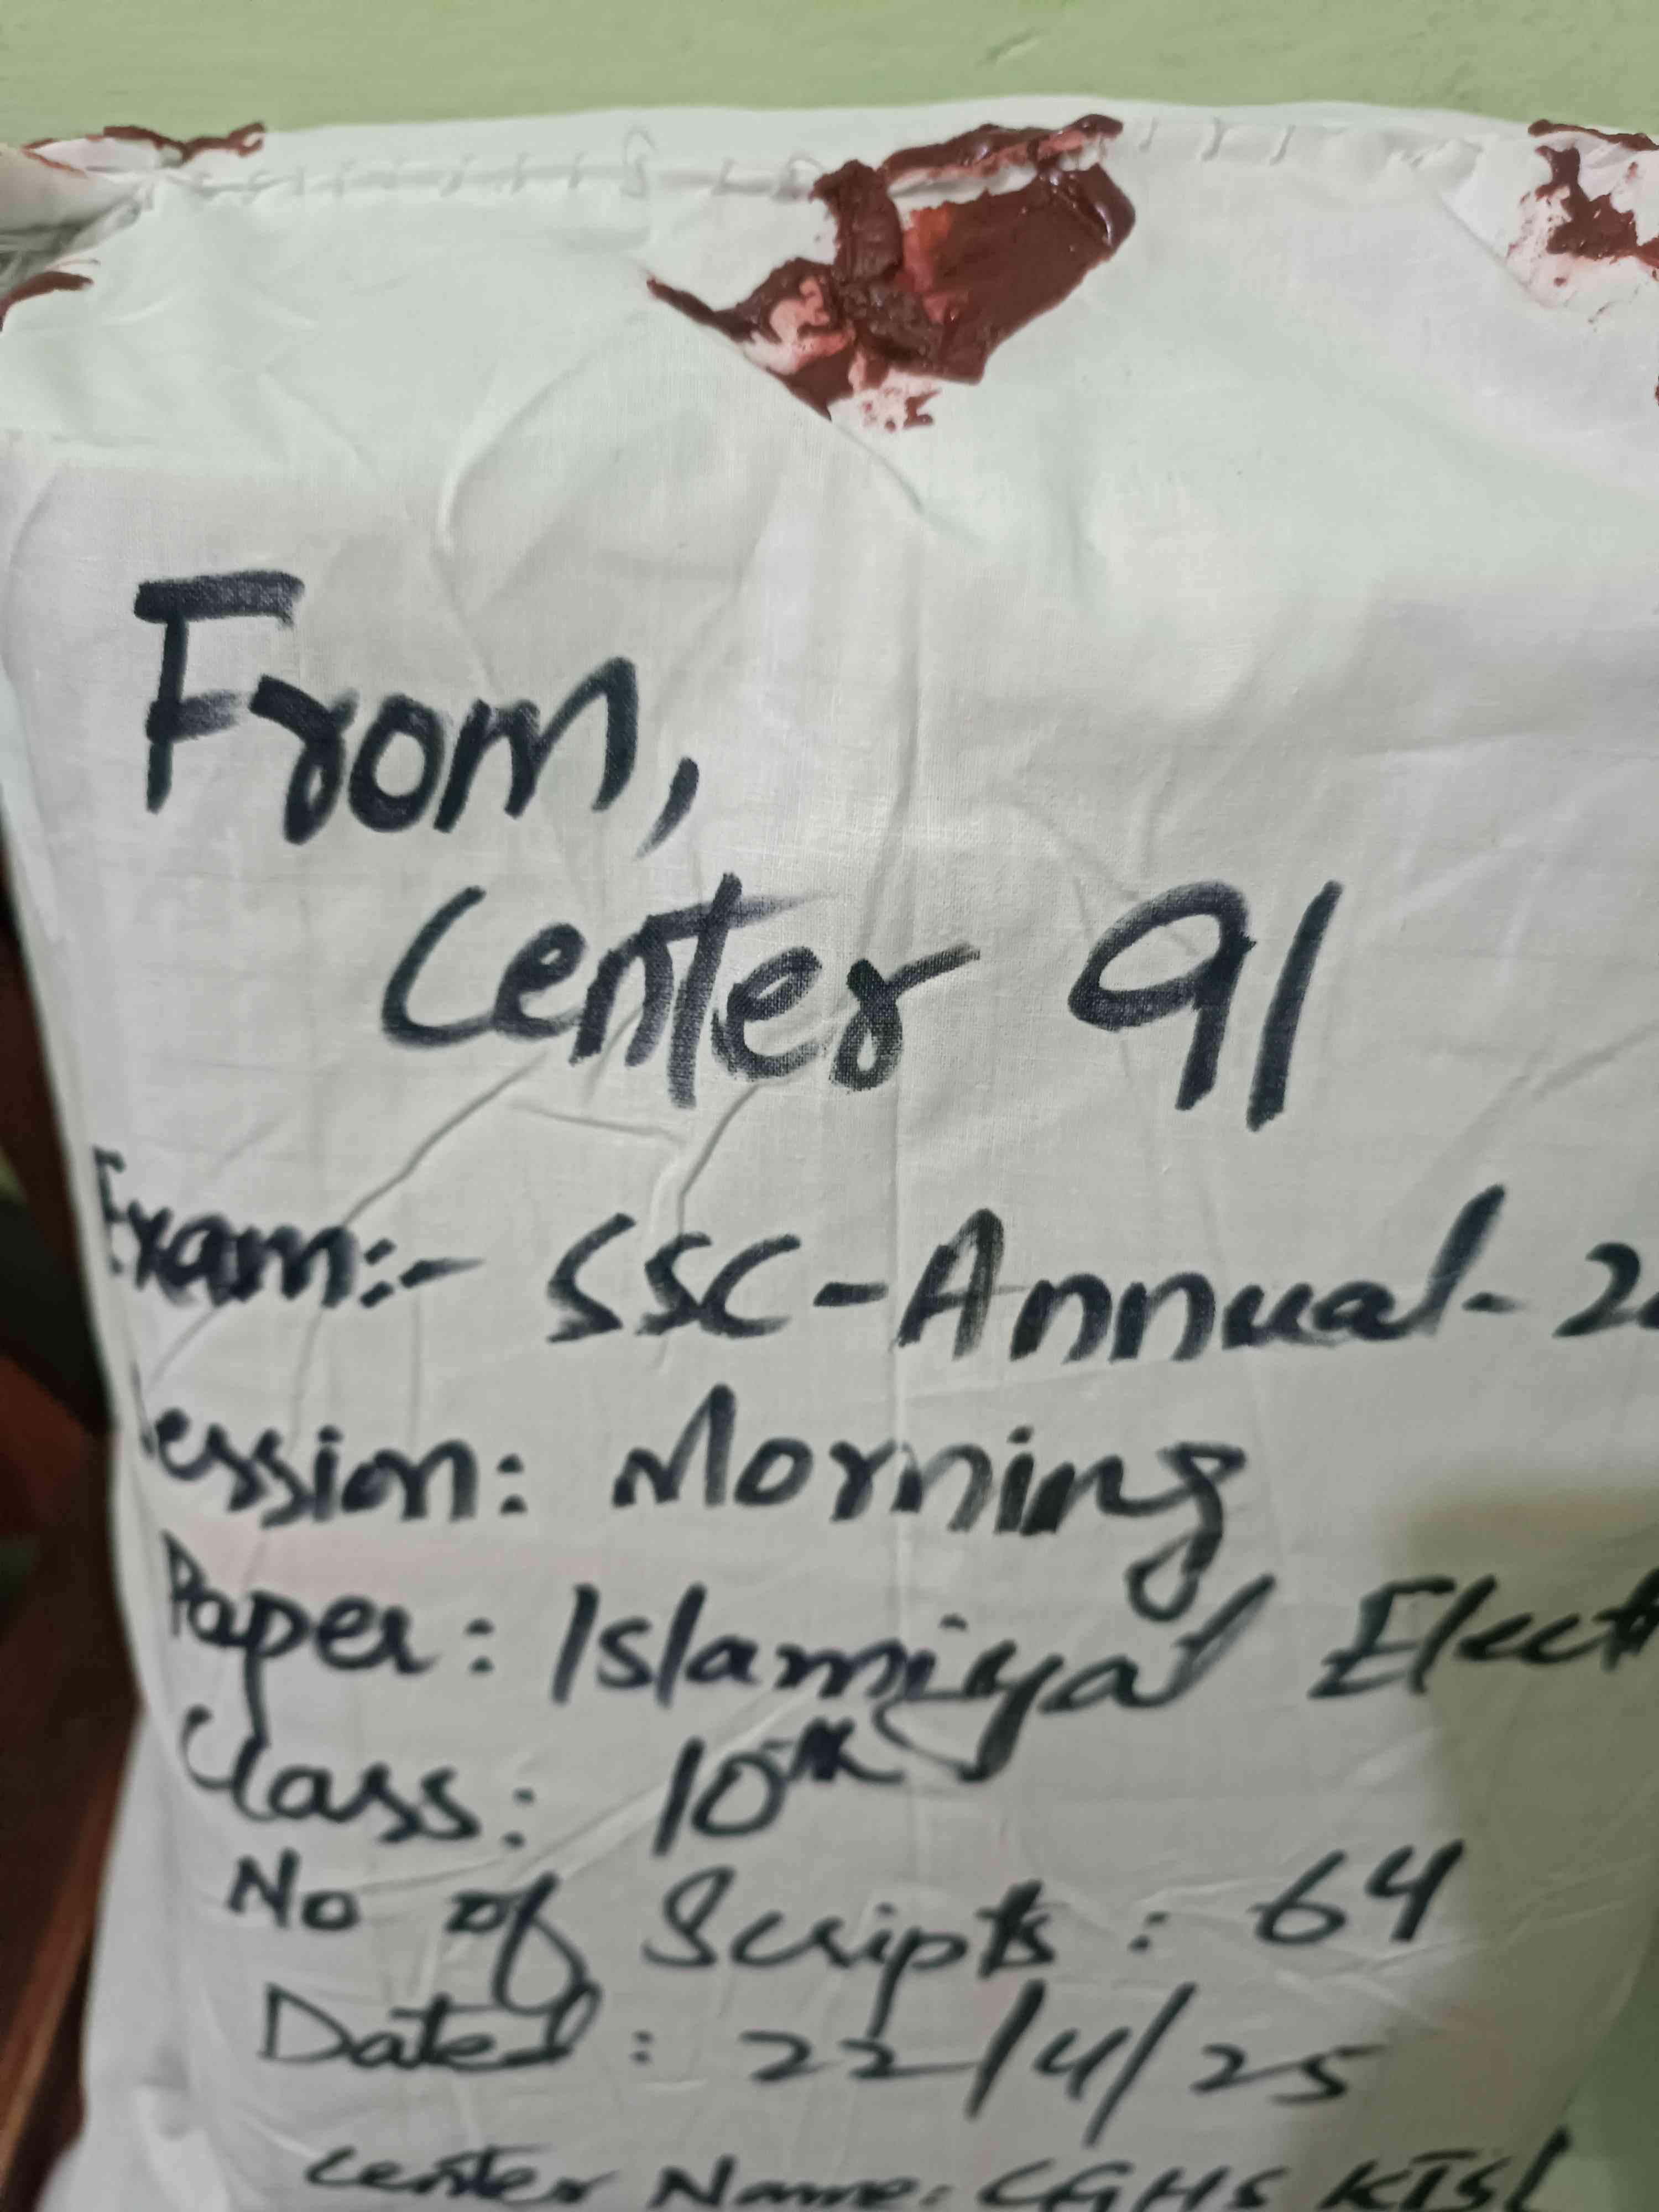 From,
Center 91
Exam:- SSC-Annual-2
ession: Morning
Paper: Islamiyat Elect
Class: 10th
No of Scripts: 64
Dated: 22/4/25
Center Name: